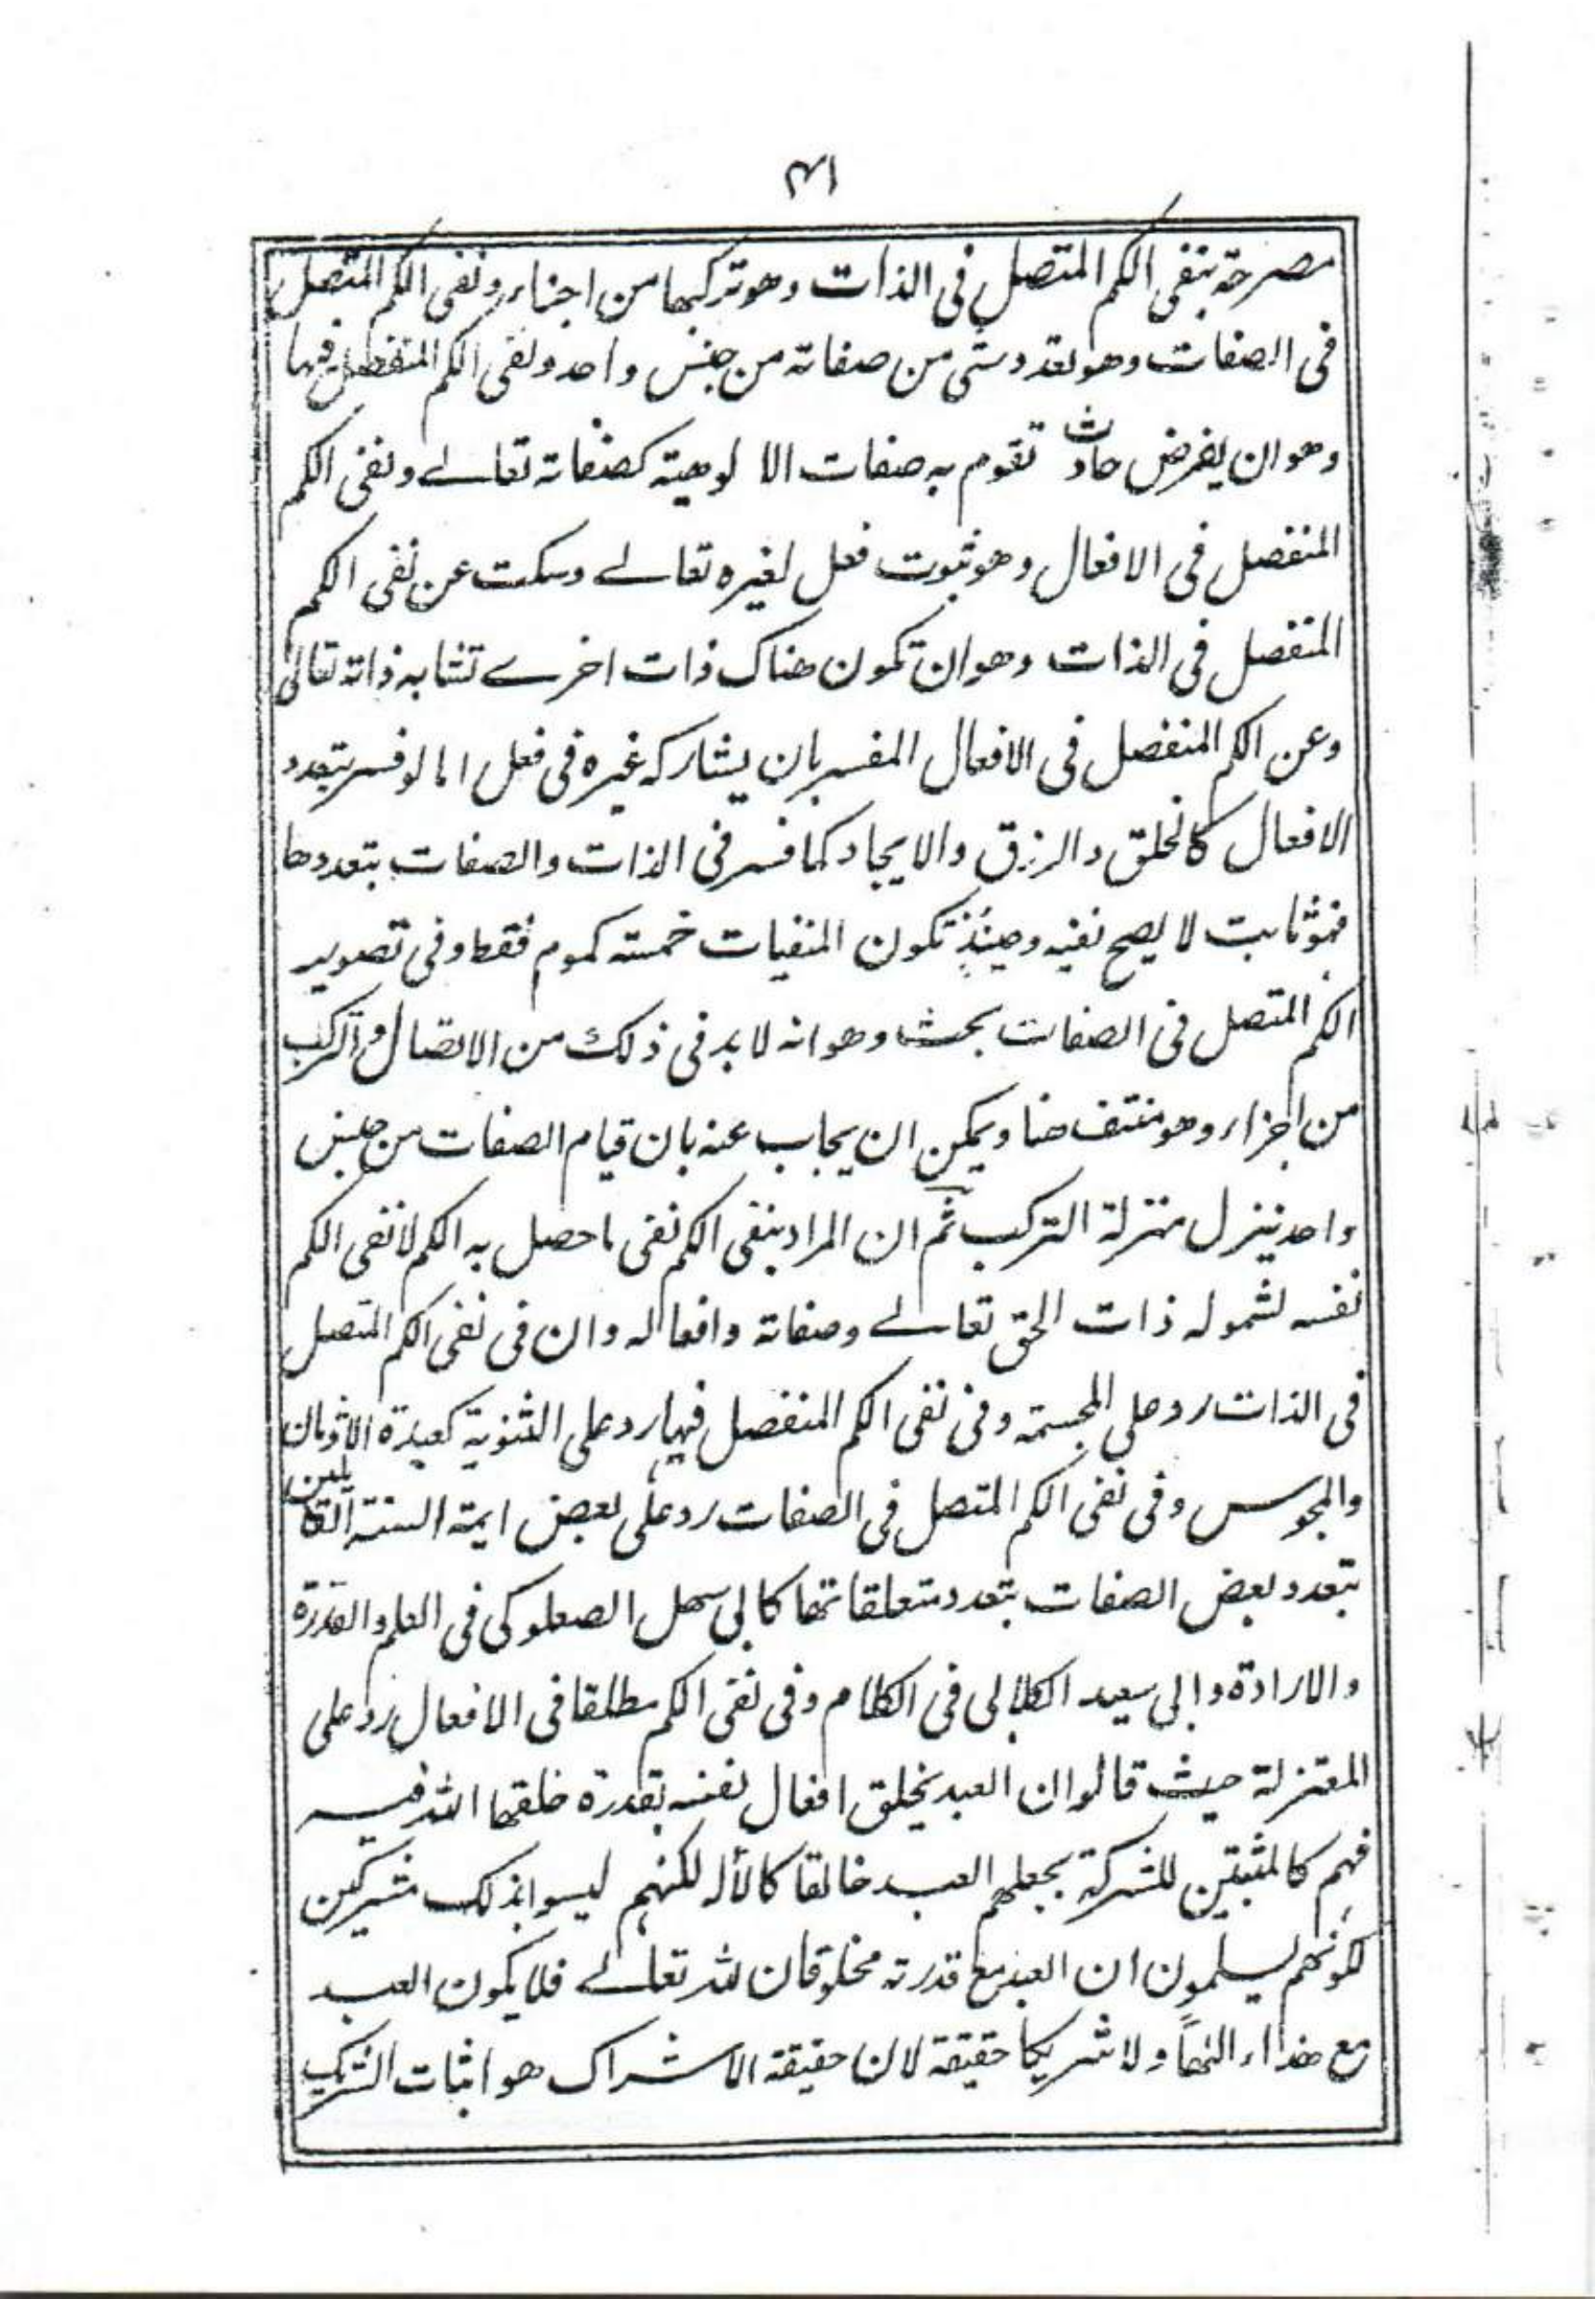 ٣١
مصرحة بنفى الكم المتصل فى الذات وهو تركبها من اجزاء ونفى الكم المتصل
فى الصفات وهو تعدد شئ من صفاته من جنس واحد ونفى الكم المنفصل فيها
وهو ان يفرض حادث تقوم به صفات الا لوهية كصفاته تعالے ونفى الكم
المنفصل فى الافعال وهو ثبوت فعل لغيره تعالے وسكت عن نفى الكم
المنفصل فى الذات وهو ان تكون هناك ذات اخرے تشابه ذاته تعالى
وعن الكم المنفصل فى الافعال المفسر بان يشاركه غيره فى فعل اما لو فسر بتعدد
الافعال كالخلق والرزق والايجاد كما فسر فى الذات والصفات بتعددها
فهو ثابت لا يصح نفيه وحينئذٍ تكون المنفيات خمسة كموم فقط وفى تصوير
الكم المتصل فى الصفات بحث وهو انه لا بد فى ذلك من الاتصال والتركب
من اجزاء وهو منتف هنا ويمكن ان يجاب عنه بان قيام الصفات من جنس
واحد ينزل منزلة التركب ثم ان المراد بنفى الكم نفى ما حصل به الكم لا نفى الكم
نفسه لشموله ذات الحق تعالے وصفاته وافعاله وان فى نفى الكم المتصل
فى الذات رد على المجسمة وفى نفى الكم المنفصل فيها رد على الثنوية كعبدة الاوثان
والمجوس وفى نفى الكم المتصل فى الصفات رد على بعض ايمة السنة القائلين
بتعدد بعض الصفات بتعدد متعلقاتها كابى سهل الصعلوكى فى العلم والقدرة
والارادة وابى سعيد الكلابى فى الكلام وفى نفى الكم مطلقا فى الافعال رد على
المعتزلة حيث قالوا ان العبد يخلق افعال نفسه بقدرة خلقها الله فيه
فهم كالمثبتين للشركة بجعلهم العبد خالقا كالأله لكنهم ليسوا بذلك مشركين
لكونهم يسلمون ان العبد مع قدرته مخلوقان لله تعالے فلا يكون العبد
مع هذا الٰهاً ولا شريكا حقيقة لان حقيقة الاشراك هو اثبات الشريك